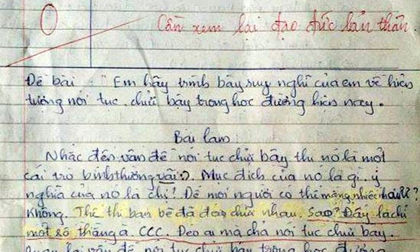 0
Cần xem lại đạo đức bản thân.
Đề bài: "Em hãy trình bày suy nghĩ của em về hiện
tượng nói tục chửi bậy trong học đường hiện nay.
Bài làm:
Nhắc đến vấn đề nói tục chửi bậy thì nó là một
cái trò bình thường vãi. Mục đích của nó là gì, ý
nghĩa của nó là chi? Để mọi người có thể mắng nhiếc
Không. Thế thì bạn bè đã đéo chửi nhau. Sao? Đấy là chỉ
một rõ thẳng à. CCC. Đéo ai mà chả nói tục chửi bậy.
quan lại vấn đề nói tục chửi bậy trong học đường